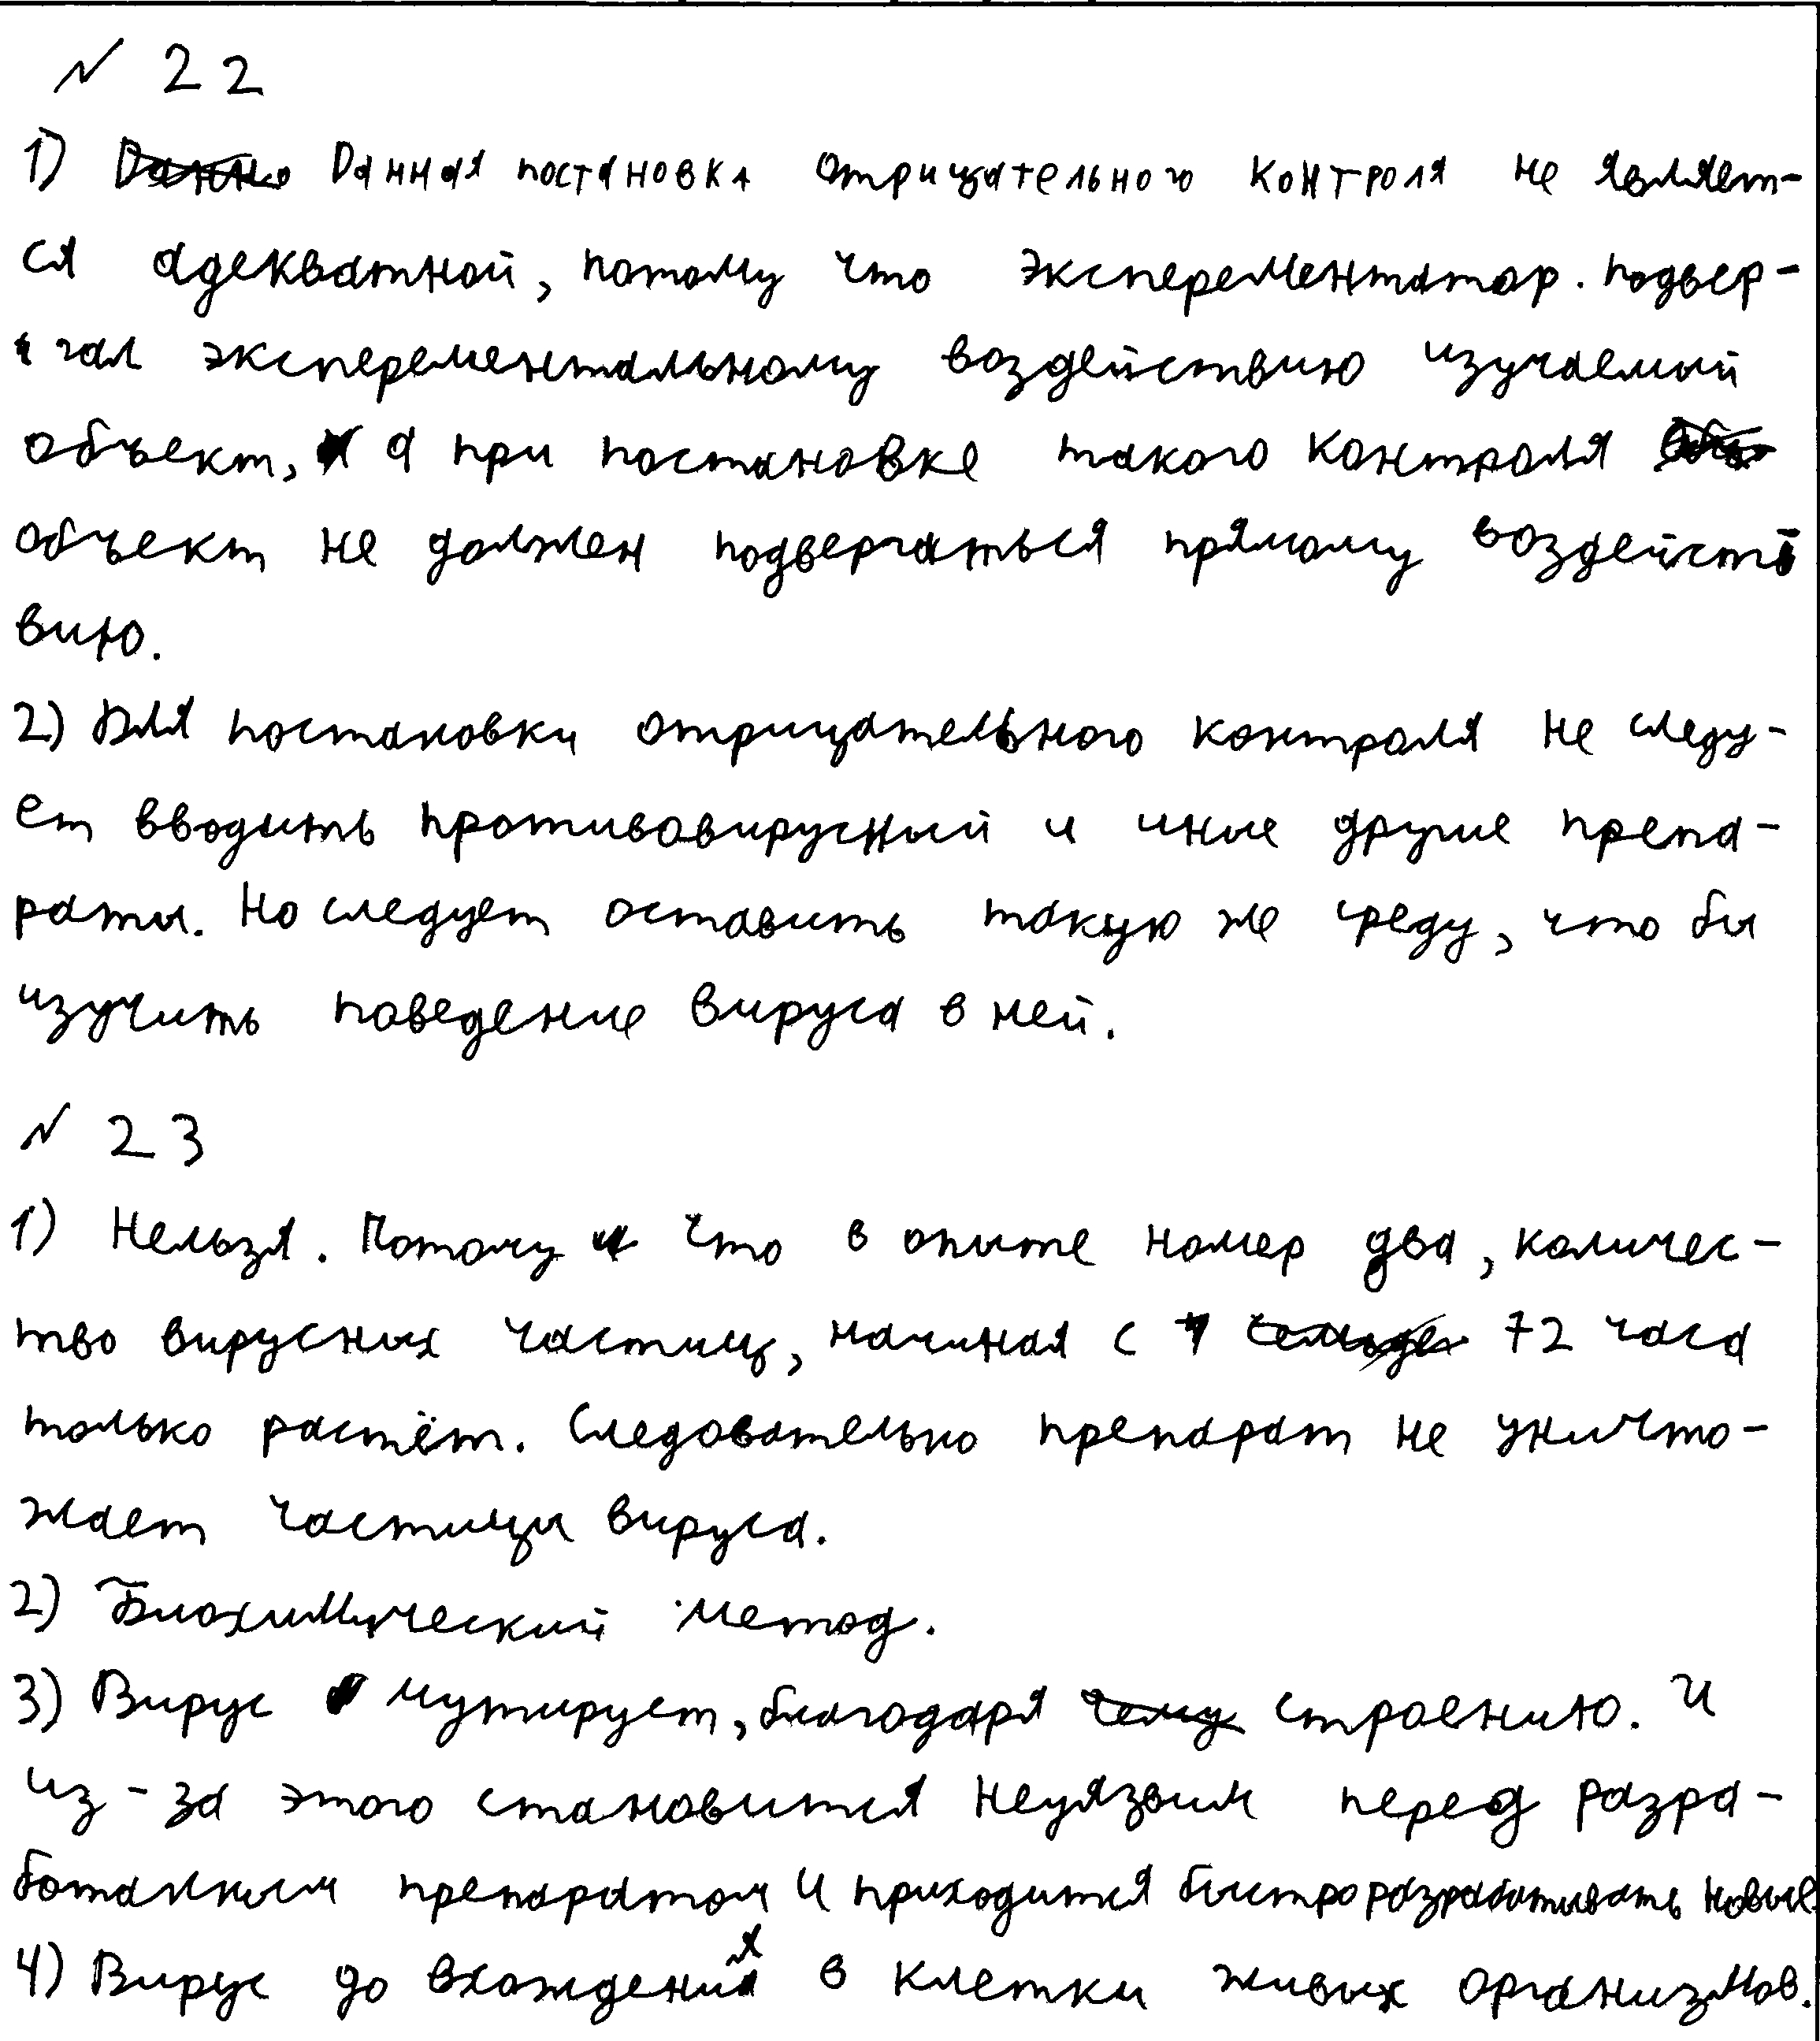 № 22
1) Данная постановка отрицательного контроля не являет-
ся адекватной, потому что эксперементатор. подвер-
гал эксперементальному воздействию изучаемый
объект, а при постановке такого контроля
объект не должен подвергаться прямому воздейст-
вию.
2) Для постановки отрицательного контроля не следу-
ет вводить противовирусный и иные другие препа-
раты. Но следует оставить такую же среду, что бы
изучить поведение вируса в ней.
№ 23
1) Нельзя. Потому что в опыте номер два, количес-
тво вирусных частиц, начиная с 72 часа
только растёт. Следовательно препарат не уничто-
жает частицы вируса.
2) Биохимический метод.
3) Вирус мутирует, благодаря строению. И
из-за этого становится неуязвим перед разра-
ботанным препаратом и приходится быстро разрабатывать новые.
4) Вирус до вхождения в клетки живых организмов.